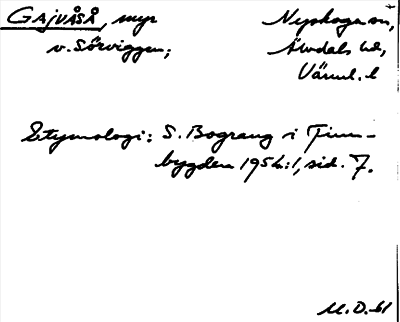 GAJVÅSÅ, myr
v. Sörviggen;
Nyskoga sn,
Älvdals hd,
Värml. l
Etymologi: S. Bograng i Finn-
bygden 1954:1, sid. 7.
M.O. 61